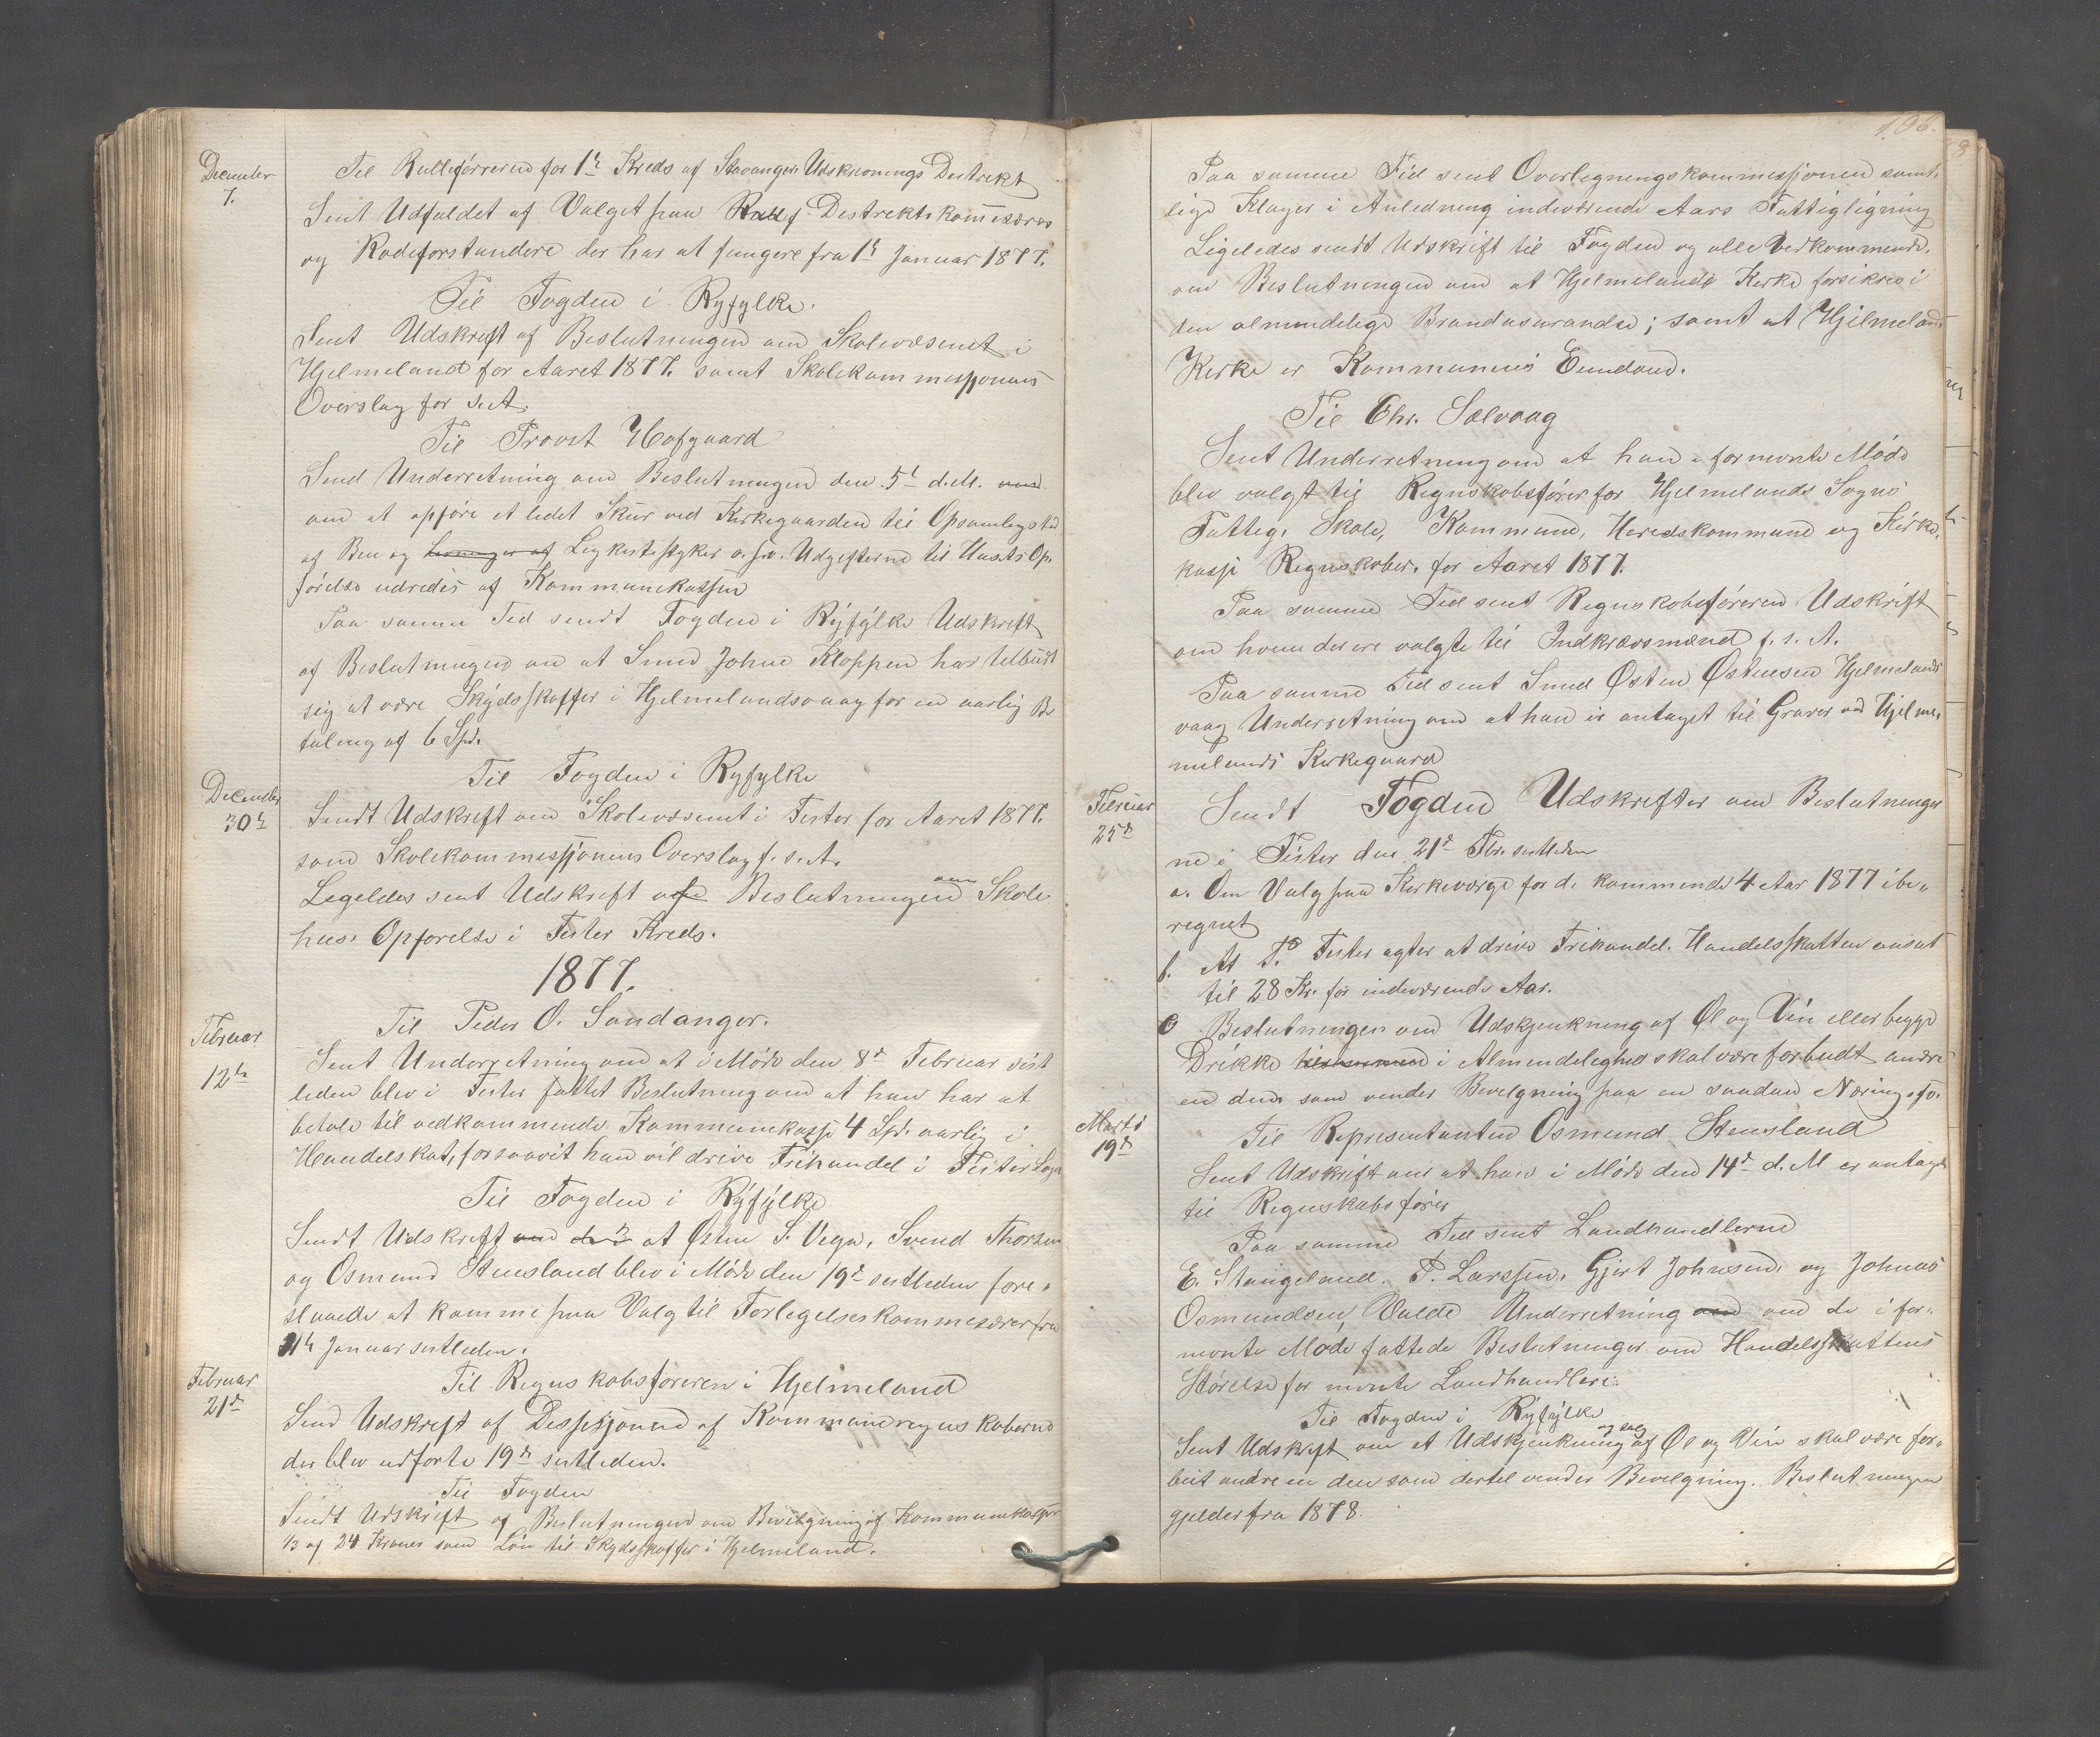 December
7.
Til Rulleförreren for 1ste Kreds af Stavangers Udskrivnings Destrekt
Sent Udfaldet af Valget paa Destrekts kommesærer
og Rodeforstandere der har at fungere fra 1ste Januar 1877.
Til Fogden i Ryfylke.
Sent Udskreft af Beslutningen om Skolevæsenet i
Hjelmeland for Aaret 1877. samt Skolekommessjonens
Overslag for s. A.
Til Provst Hofgaard
Send Underretning om Beslutningen den 5te d. M. om
om at opføre et ledet Skur ved Kirkegaarden til Opsamlegsted
af Ben og Levninger af Legkestestyker o. s. v. Udgefterne til Husets Op-
førelse udredes af Kommunekassen
Paa samme Ted sendt Fogden i Ryfylke Udskreft
af Beslutningen om at Svend Johne Kloppen har telbudt
sig at være Skydsskaffer i Hjelmelandsvaag for en aarlig Be
taling af 6 Spd.
Til Fogden i Ryfylke
December
30te
Sendt Udskreft om Skolevæsenet i Fister for Aaret 1877.
som Skolekommessjonens Overslag f. s. A.
Legeldes sent Udskreft af Beslutningen om Skole-
huss Opførelse i Fister Kreds.
1877.
Til Peder O. Sandanger.
Februar
12te
Sent Underretning om at i Møde den 8de Februar sist
leden blev i Fister fattet Beslutning om at han har at
betale til vedkommende Kommunekasse 4 Spd. aarlig i
Handelskat, forsaavit han vil drive Frihandel i Fister Sogn
Til Fogden i Ryfylke
Sendt Udskreft om den at Østen S. Vega, Svend Thorsen
og Osmund Stensland blev i Møde den 19de sestleden fore-
slaaede at komme paa Valg til Forlegelseskommesærer fra
1ste Januar sestleden.
Februar
21de
Til Regnskabsføreren i Hjelmeland
Send Udskreft af Dessesjonen af Kommuneregnskaberne
der blev udførte 19de sestleden.
Til Fogden
Sendt Udskrift af Beslutningen om Bevelgning af Kommunekassen
1/3 af 24 Kroner som Løn til Skydsskaffer i Hjelmeland.
106.
Paa samme Tid sent Overlegningskommessjonen samt-
lige Klager i Anledning indeværende Aars Fattigligning
Ligeledes sendt Udskrift til Fogden og alle Vedkommende.
om Beslutningen om at Hjelmelands Kerke forsikres i
den almendelige Brandasurandse; samt at Hjelmelands
Kerke er Kommunens Eiendom.
Til Chr. Sælvaag
Sent Underretning om at han i formente Møde
blev valgt til Regnskabsfører for Hjelmelands Sogns
Fatteg, Skole, Kommune, Heredskommune og Kirke-
kasse Regnskaber. for Aaret 1877.
Paa samme Ted sent Regnskabsføreren Udskrift
om hvem der ere valgte til Indkrævsmænd f. s. A.
Paa samme Ted sent Svend Østen Østensen Hjelmelands
vaag Underretning om at han er antaget til Graver ved Hjelme-
melands Kerkegaard
Februar
25de
Sendt Fogden Udskrefter om Beslutninger
ne i Fister den 21de Fbr. sestleden
a. Om Valg paa Kerkeværge for de kommende 4 Aar 1877 ibe-
regnet
b. At P. Fister agter at drive Frihandel. Handelsskatten ansat
til 28 Kr. for indeværende Aar.
c Beslutningen om Udskjenkning af Øl og Vin eller begge
Drikke i Almendeleghed skal være forbudt andre
en dem som vender Bevelgning paa en saadan Nærings
Marts
19de
Til Representanten Osmund Stensland
Sent Udskrift om at han i Møde den 14de d. M er antaget
til Regnskabsfører
Paa samme Ted sent Landhandlerne
E. Stangeland. P. Larssen, Gjert Johnsen, og Johnas
Osmundsen, Valde Underretning om om de i for-
mente Møde fattede Beslutninger om Handelsskattens
Størelse for mente Landhandlere.
Til Fogden i Ryfylke
Sent Udskrift om at Udskjenkning og salg af Øl og Vin skal være for-
beit andre en den som dertel vender Bevelgning. Beslutningen
gjelder fra 1878.